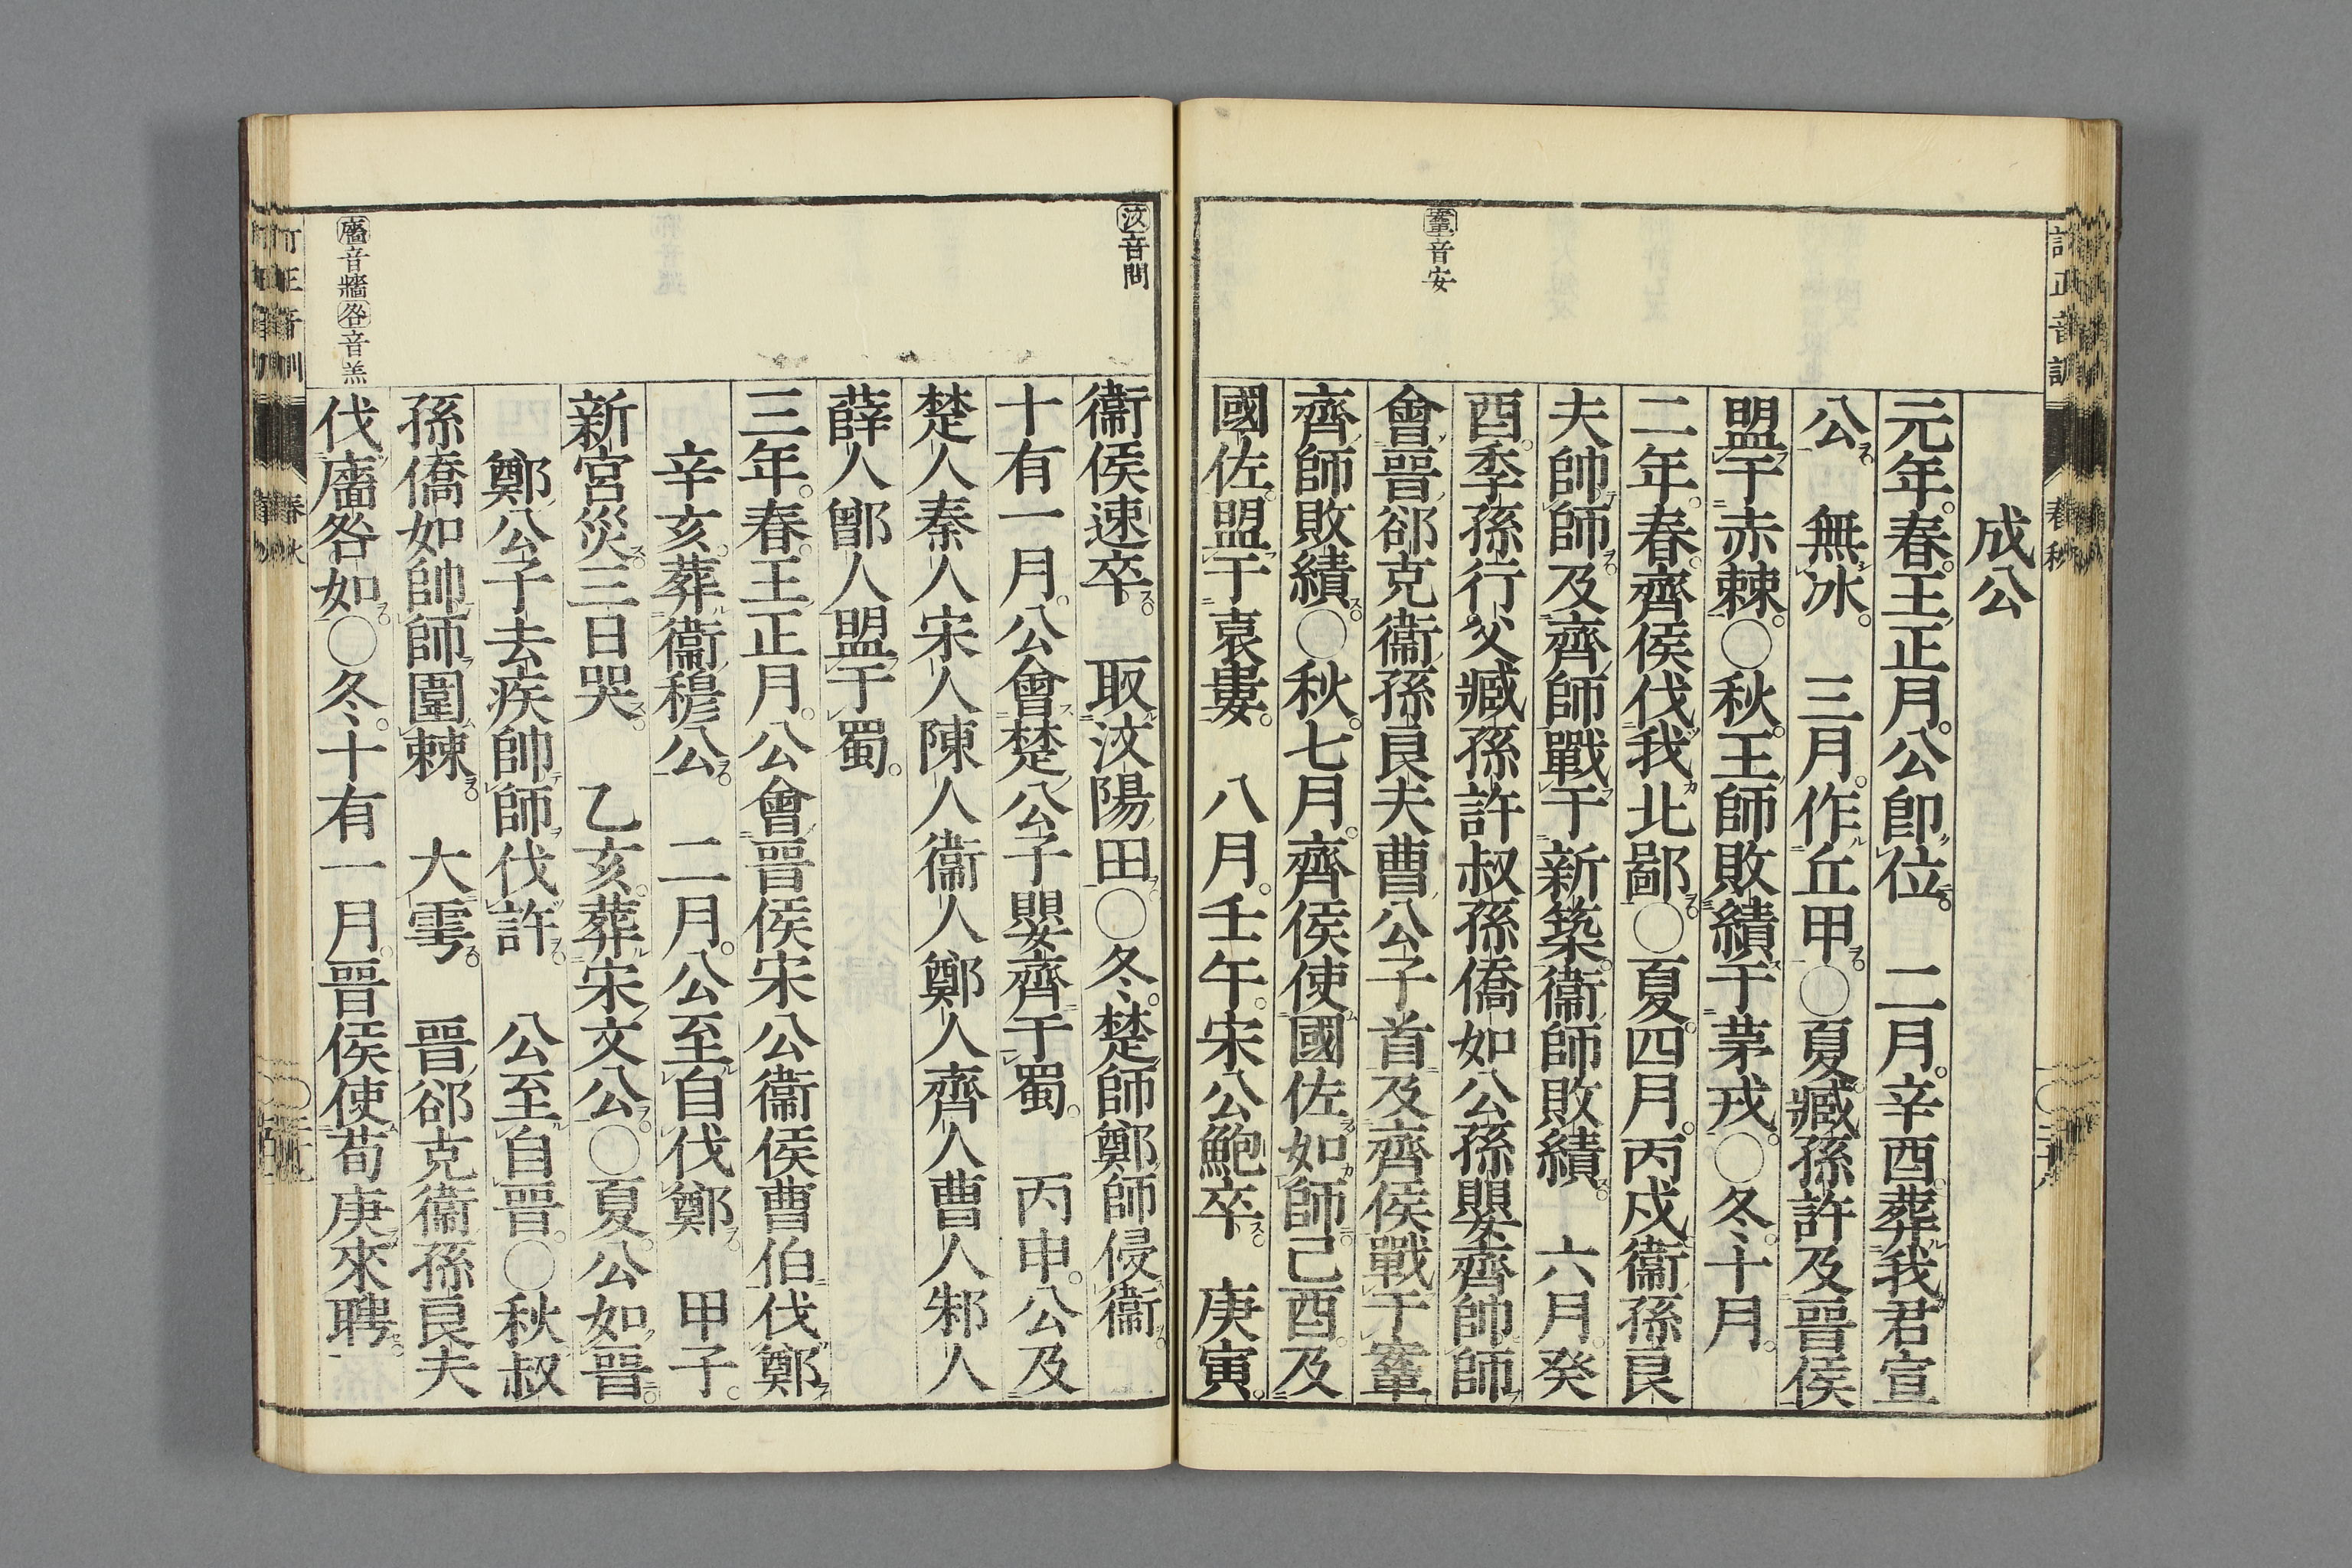 訂正音訓
春秋
鞌音安
成公
元年。春。王正月。公卽位。 二月。辛酉。葬我君宣
公 無冰。 三月。作丘甲○夏。臧孫許及晉侯
盟于赤棘。○秋。王師敗績于茅戎。○冬。十月。
二年。春。齊侯伐我北鄙○夏。四月。丙戌衞孫良
夫帥師。及齊師戰于新築。衞師敗績。 六月。癸
酉。季孫行父臧孫許叔孫僑如公孫嬰齊帥師
會晉郤克衞孫良夫曹公子首及齊侯戰于鞌
齊師敗績。○秋。七月。齊侯使國佐如師。己酉。及
國佐。盟于袁婁。 八月。壬午。宋公鮑卒。 庚寅。
汶音問
衞侯速卒。 取汶陽田○冬。楚師鄭師侵衞。
十有一月。公會楚公子嬰齊于蜀。 丙申。公及
楚人秦人宋人陳人衞人鄭人齊人曹人邾人
薛人鄫人盟于蜀。
三年。春。王正月。公會晉侯宋公衞侯曹伯伐鄭
辛亥。葬衞穆公 二月。公至自伐鄭 甲子。
新宮災。三日哭。 乙亥。葬宋文公。○夏。公如晉。
鄭公子去疾帥師伐許。 公至自晉。○秋叔
孫僑如帥師圍棘 大雩。 晉郤克衞孫良夫
伐廧咎如○冬。十有一月。晉侯使荀庚來聘。
廧音牆咎音羔
訂正音訓
春秋